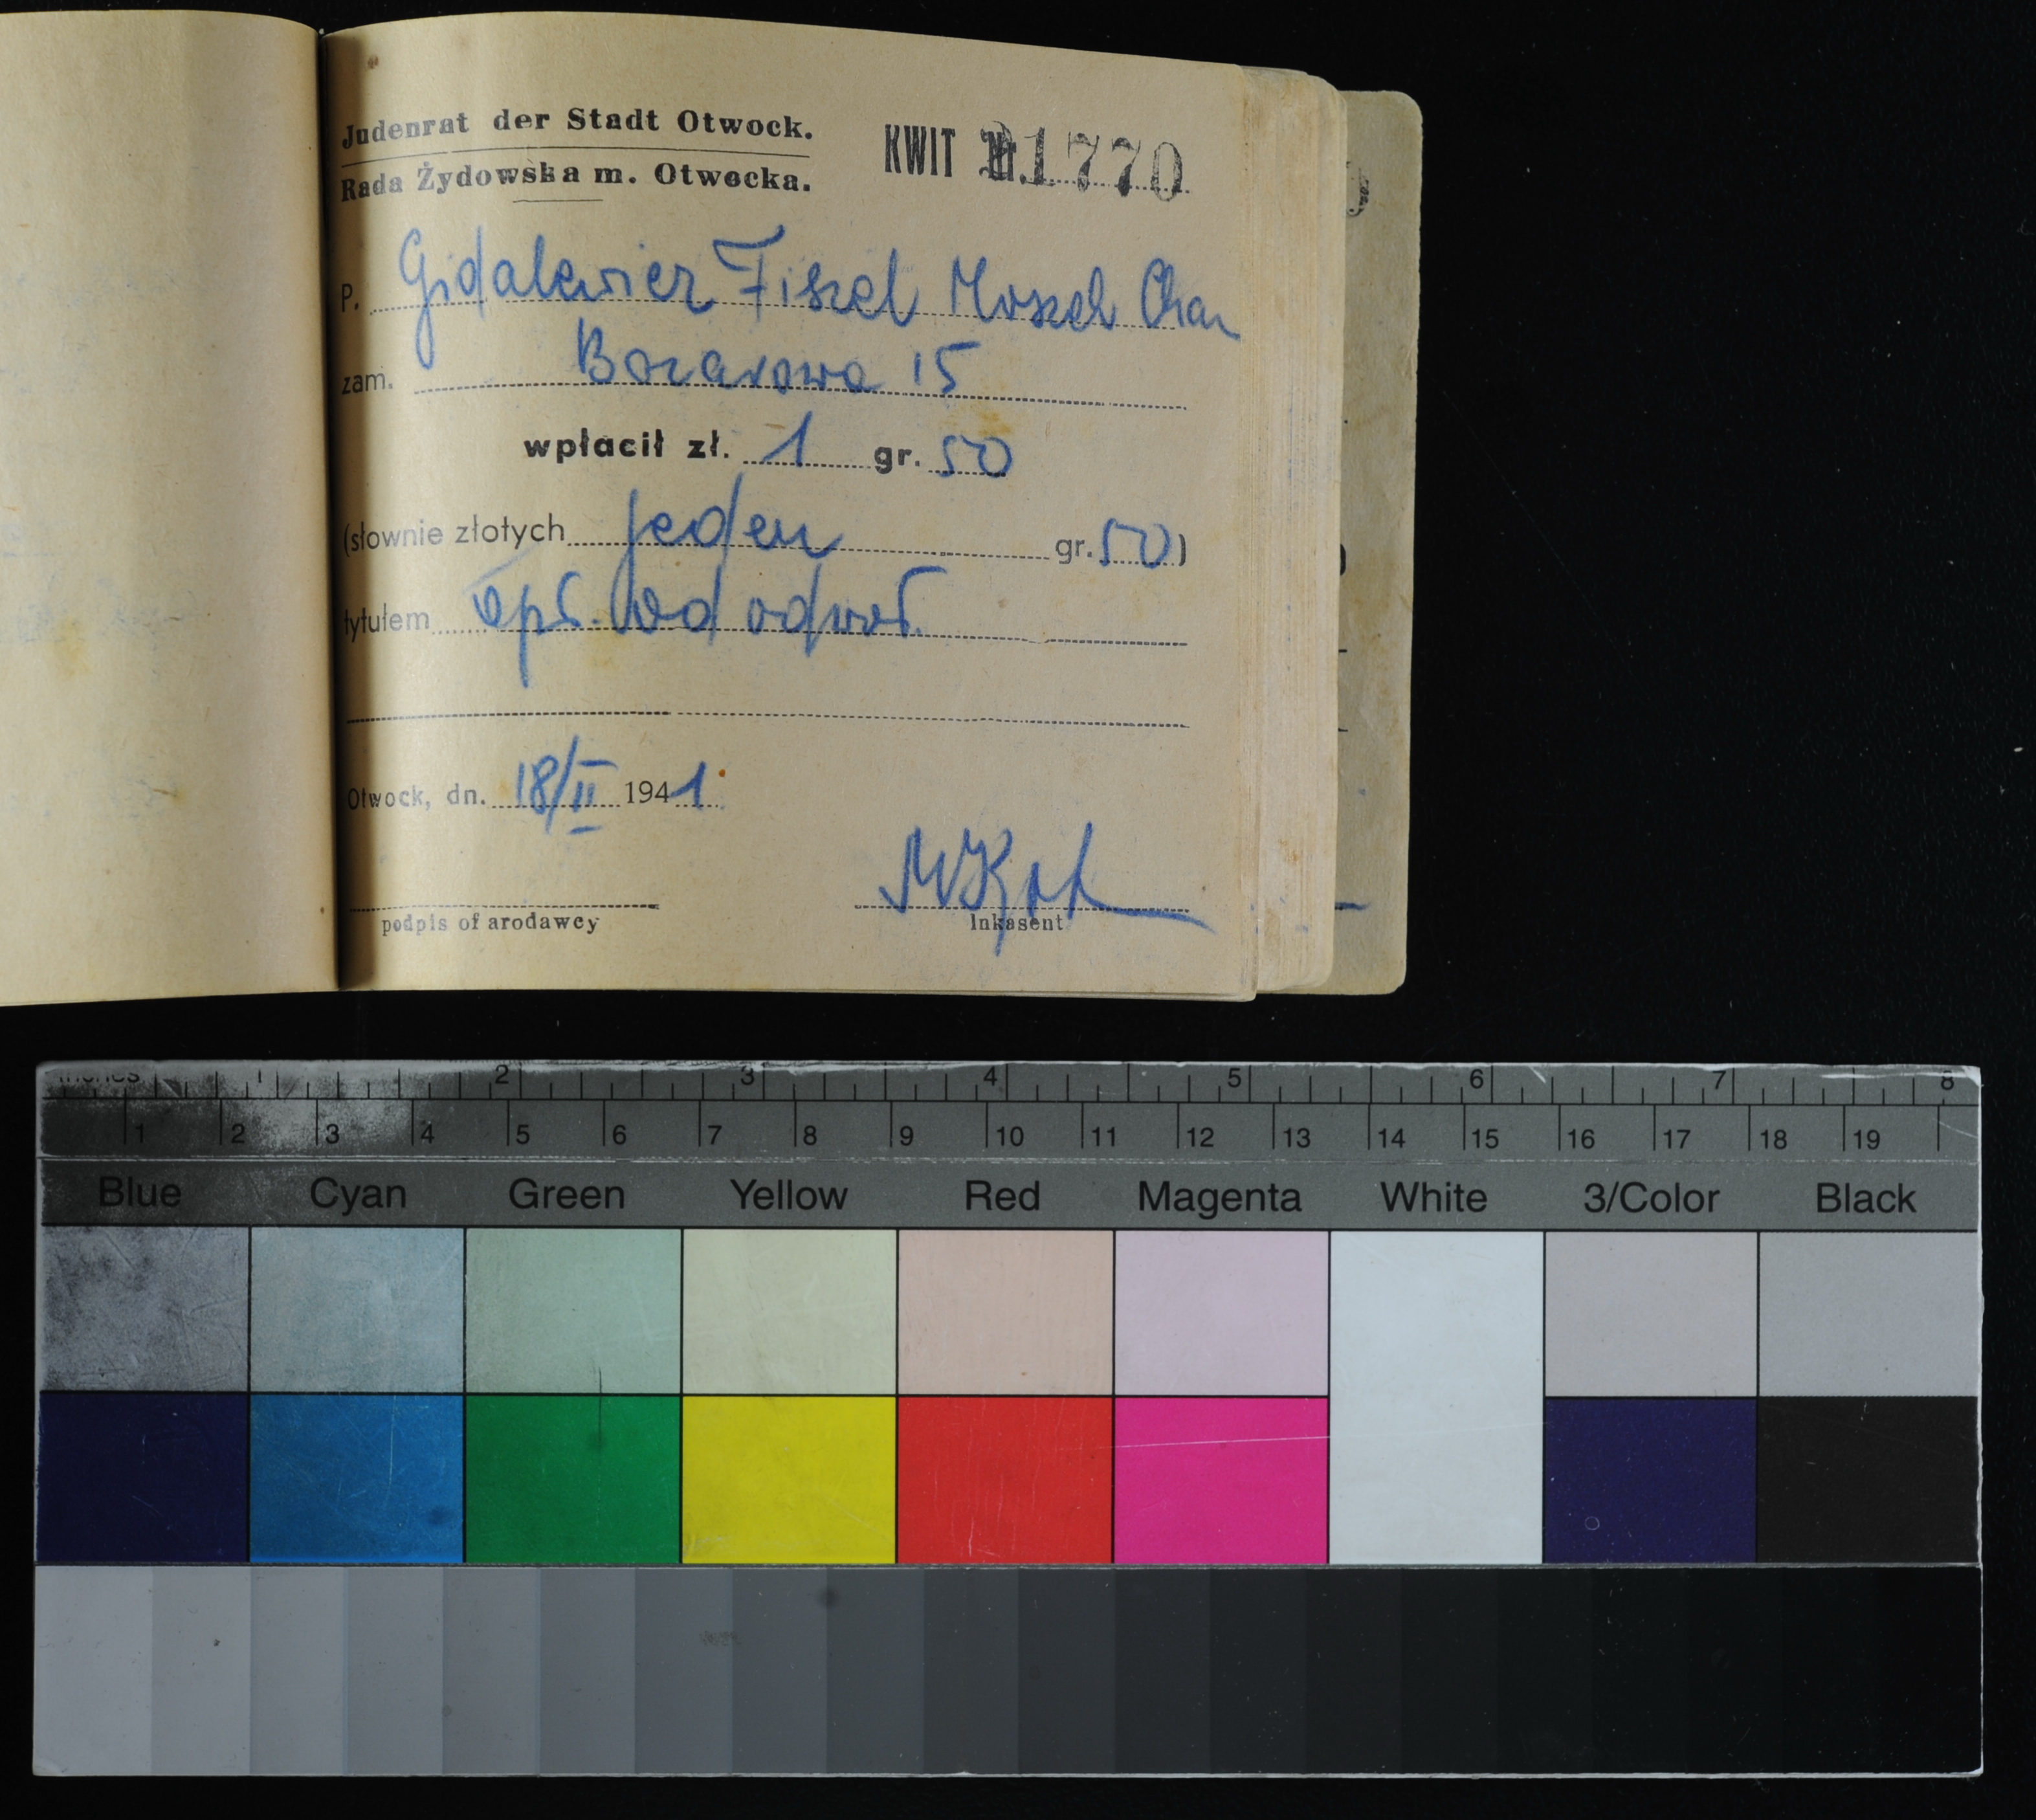 Judenrat der Stadt Otwock.
Rada Żydowska m. Otwocka.
KWIT Nr. 1770
P. Gidalewicz Fiszel Moszek Chan
zam. Bazarowa 15
wpłacił zł. 1 gr. 50
(słownie złotych jeden gr. 50)
tytułem opł. od
Otwock, dn. 18/II 1941
podpis of arodawcy
Inkasent
inches 1 2 3 4 5 6 7 8
1 2 3 4 5 6 7 8 9 10 11 12 13 14 15 16 17 18 19
Blue Cyan Green Yellow Red Magenta White 3/Color Black